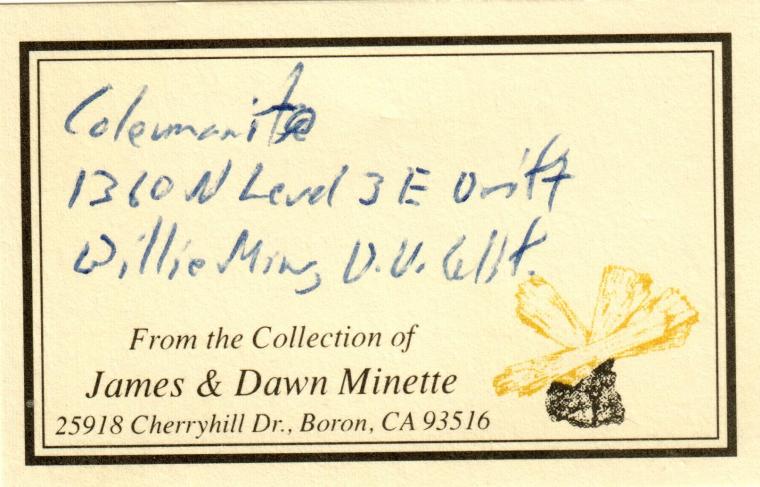 Colemanite
1360 N Level 3 E Drift
Willie Mine, D.V. Calif.
From the Collection of
James & Dawn Minette
25918 Cherryhill Dr., Boron, CA 93516